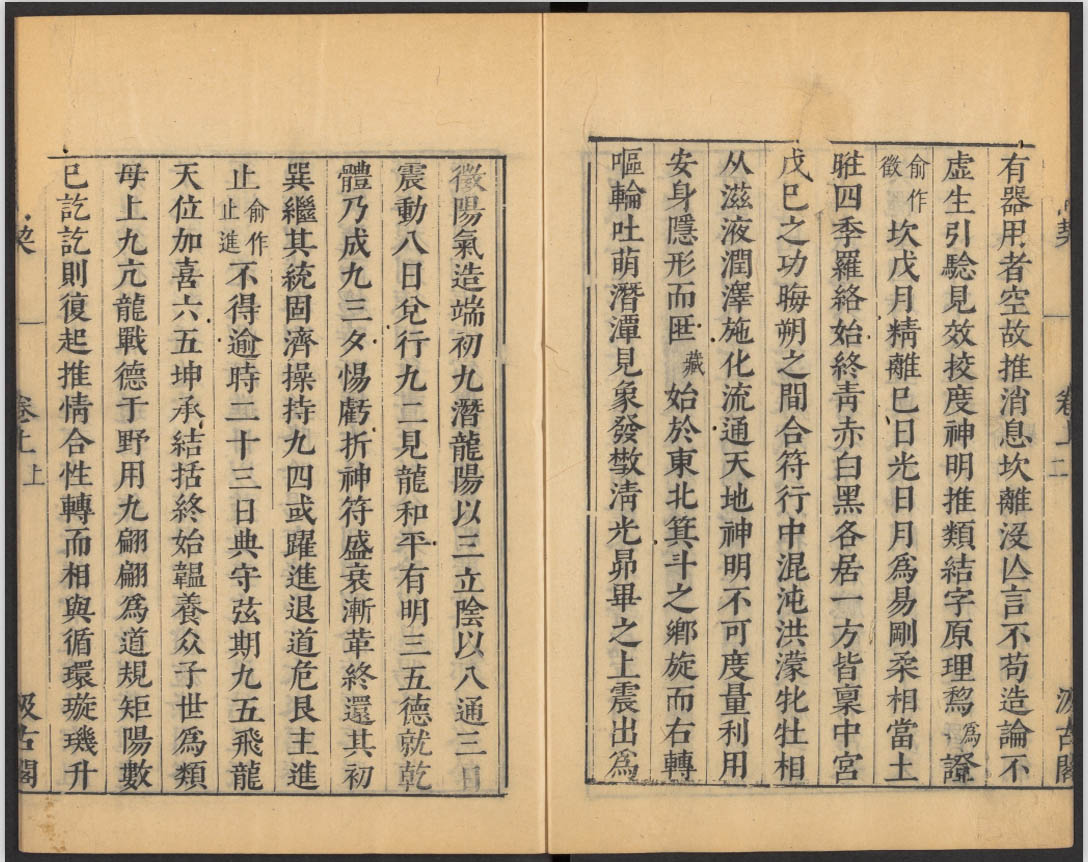 有器用者空故推消息坎離沒亾言不苟造論不
虛生引驗見效挍度神明推類結字原理爲 為 證
俞作徵 坎戊月精離巳日光日月爲易剛柔相當土
旺四季羅絡始終青赤白黑各居一方皆稟中宮
戊巳之功晦朔之間合符行中混沌洪濛牝牡相
从滋液潤澤施化流通天地神明不可度量利用
安身隱形而匿 藏 始於東北箕斗之鄉旋而右轉
嘔輪吐萌潛潭見象發散淸光昴畢之上震出爲
徵陽氣造端初九潛龍陽以三立陰以八通三日
震動八日兌行九二見龍和平有明三五德就乾
體乃成九三夕惕虧折神符盛衰漸革終還其初
巽繼其統固濟操持九四或躍進退道危艮主進
止 俞作止進 不得逾時二十三日典守弦期九五飛龍
天位加喜六五坤承結括終始韞養众子世爲類
母上九亢龍戰德于野用九翩翩爲道規矩陽數
已訖訖則復起推情合性轉而相與循環璇璣升
契
卷上
二
汲古閣
契
卷上
上
汲古閣